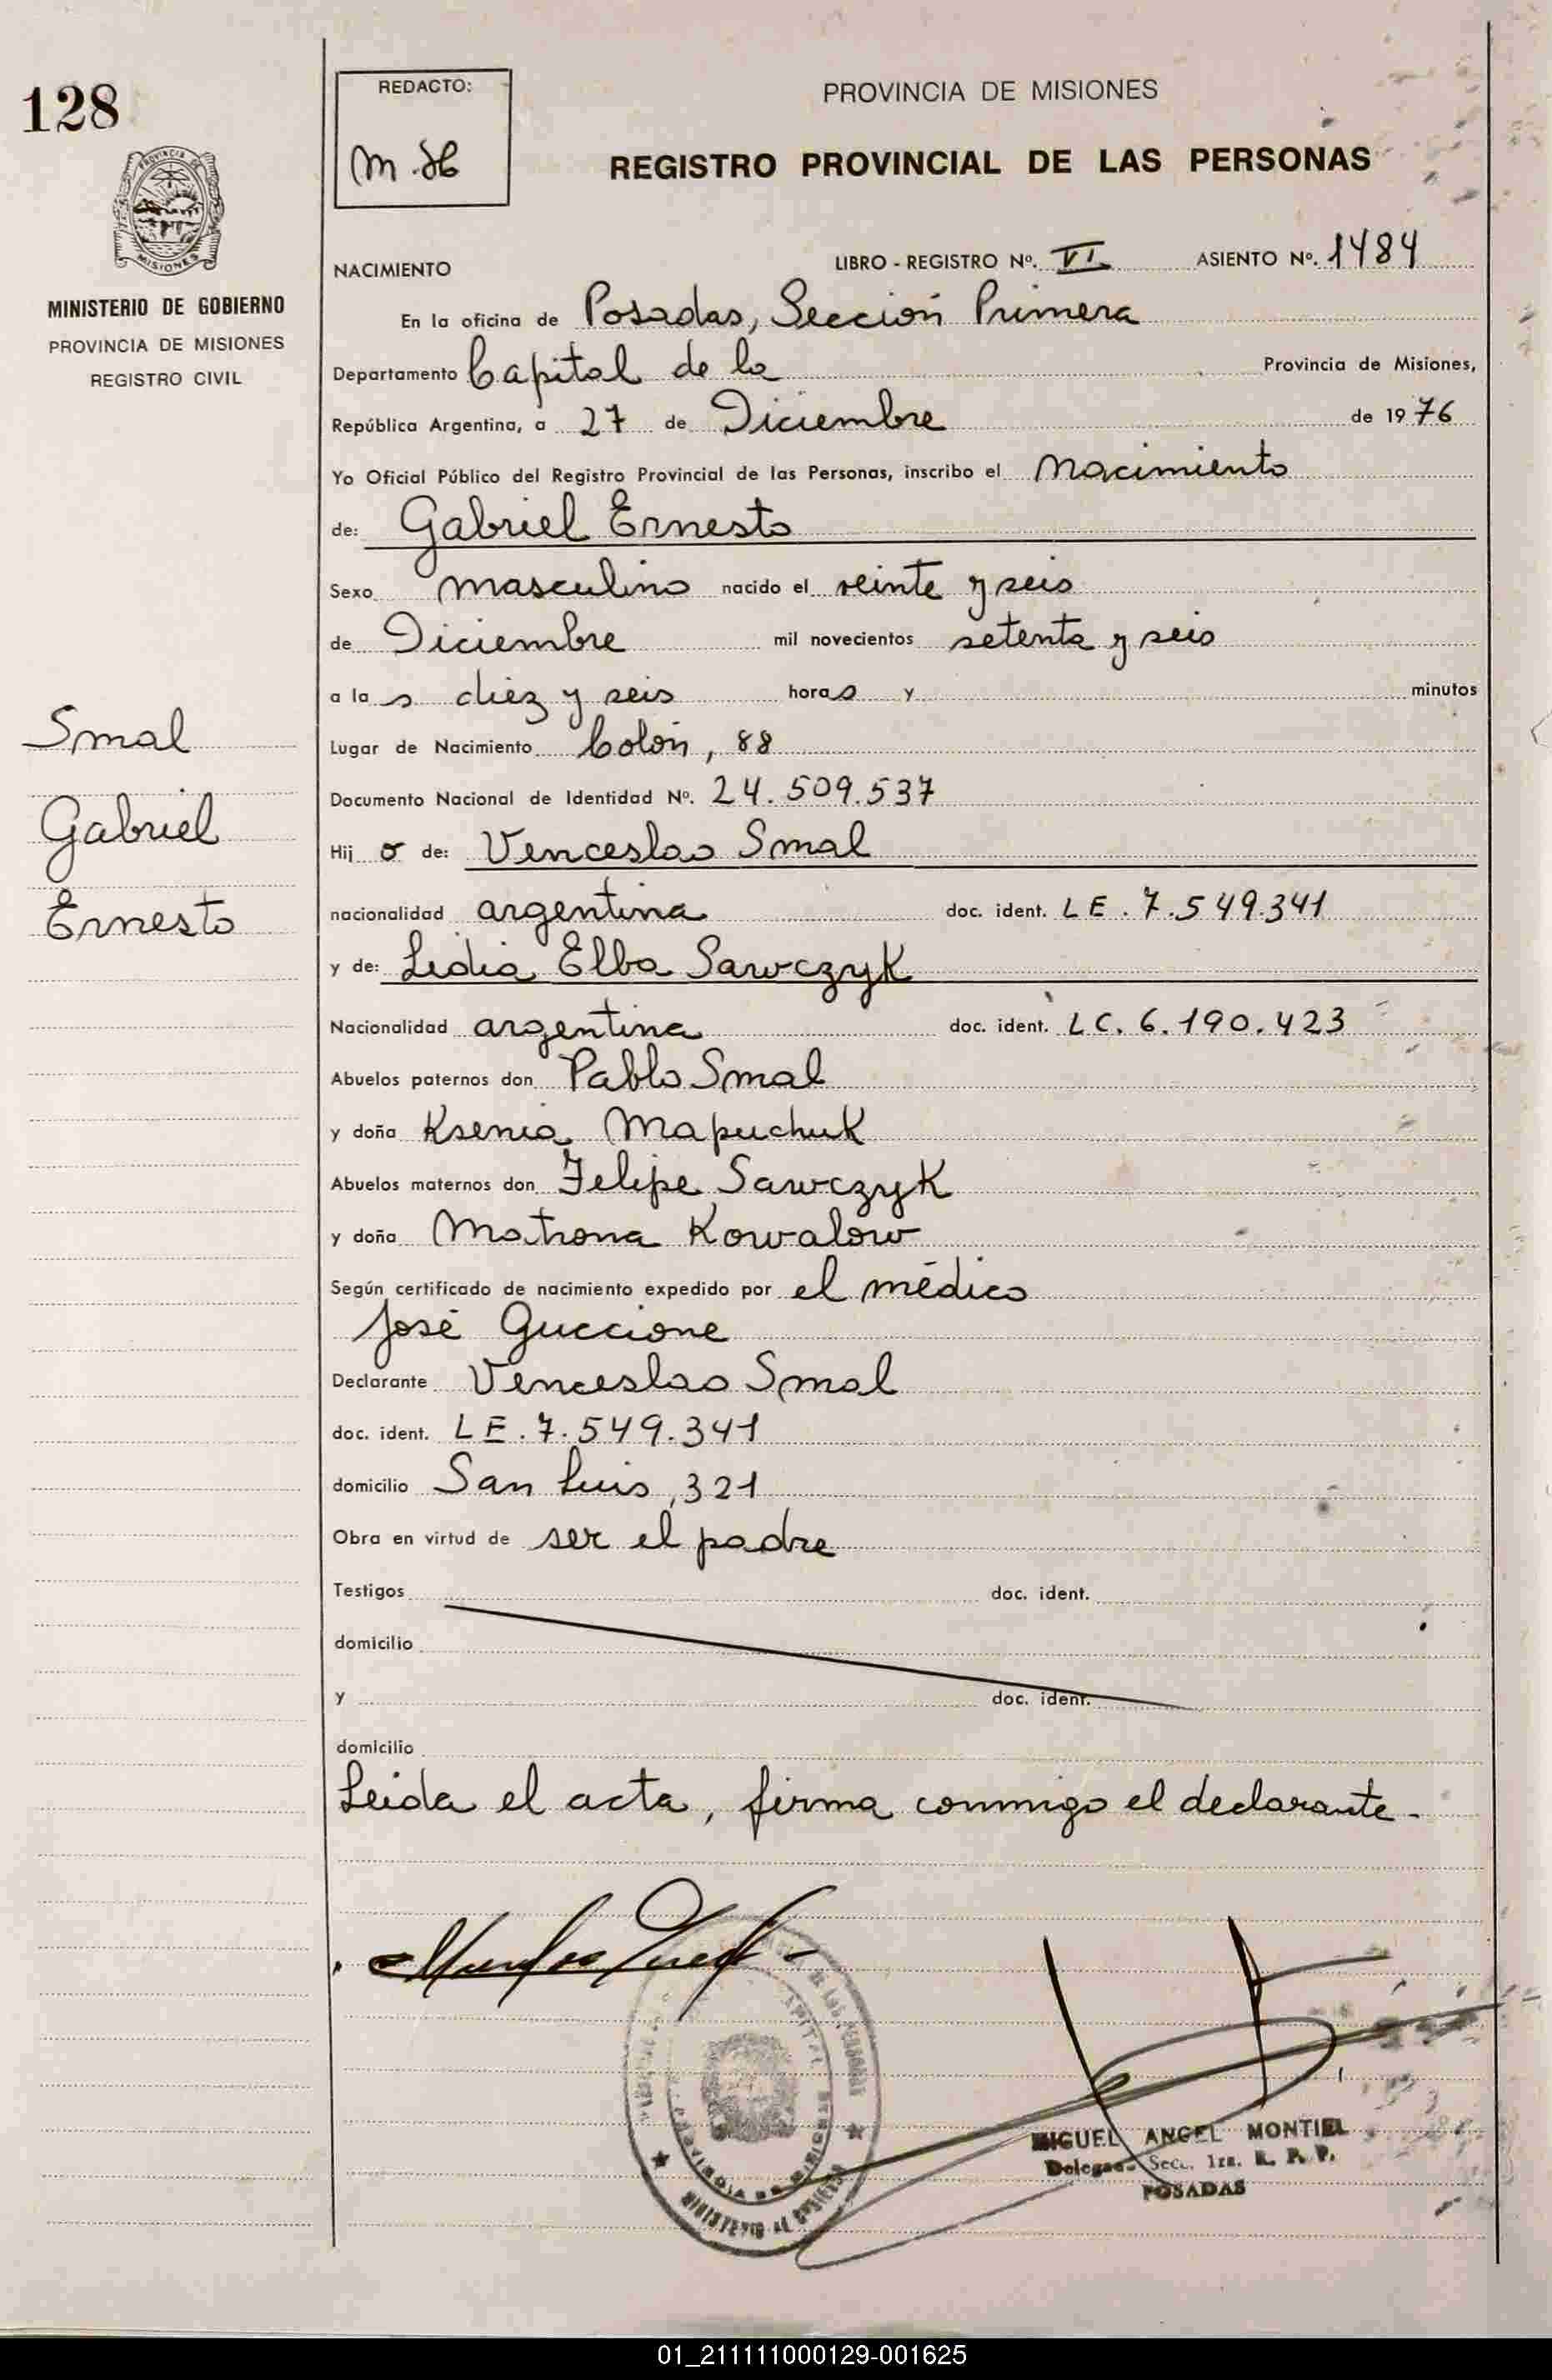 128
PROVINCIA DE
MISIONES
MINISTERIO DE GOBIERNO
PROVINCIA DE MISIONES
REGISTRO CIVIL
Smal
Gabriel
Ernesto
REDACTO:
PROVINCIA DE MISIONES
REGISTRO PROVINCIAL DE LAS PERSONAS
NACIMIENTO LIBRO - REGISTRO Nº. VI ASIENTO Nº. 1484
En la oficina de Posadas, Sección Primera
Departamento Capital de la Provincia de Misiones,
República Argentina, a 27 de Diciembre de 1976
Yo Oficial Público del Registro Provincial de las Personas, inscribo el Nacimiento
de: Gabriel Ernesto
Sexo masculino nacido el veinte y seis
de Diciembre mil novecientos setenta y seis
a la s diez y seis horas y minutos
Lugar de Nacimiento Colón, 88
Documento Nacional de Identidad Nº. 24.509.537
Hij o de: Venceslao Smal
nacionalidad argentina doc. ident. LE. 7.549.341
y de: Lidia Elba Sawczyk
Nacionalidad argentina doc. ident. LC. 6.190.423
Abuelos paternos don Pablo Smal
y doña Ksenia Mapuchuk
Abuelos maternos don Felipe Sawczyk
y doña Matrona Kowalow
Según certificado de nacimiento expedido por el médico
José Guccione
Declarante Venceslao Smal
doc. ident. LE. 7.549.341
domicilio San Luis, 321
Obra en virtud de ser el padre
Testigos doc. ident.
domicilio
y doc. ident.
domicilio
Leida el acta, firma conmigo el declarante.
MIGUEL ANGEL MONTIEL
Delegado Secc. 1ra. R. P. P.
POSADAS
01_211111000129-001625